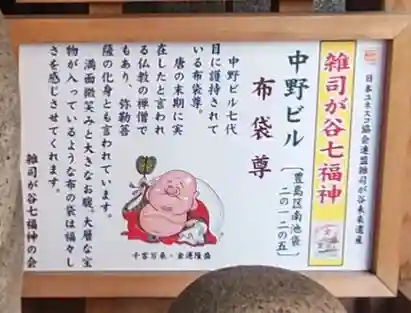 日本ユネスコ協会連盟雑司が谷未来遺産
雑司が谷七福神
中野ビル
〔豊島区南池袋
二の一二の五〕
布袋尊
中野ビル七代
目に護持されて
いる布袋尊。
唐の末期に実
在したと言われ
る仏教の禅僧で
もあり、弥勒菩
薩の化身とも言われています。
満面微笑みと大きなお腹。大層な宝
物が入っているような布の袋は福々し
さを感じさせてくれます。
雑司が谷七福神の会
千客万来・金運隆盛